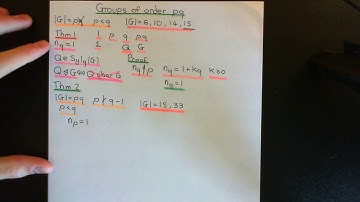 Groups of order pq
|G|=pq p<q |G|=6,10,14,15
Thm 1 1 p q pq
n_q=1 1 Q G
Q∈Syl_q(G) Proof
Q⊴G Q char G n_q|p n_q=1+kq k≥0
n_q=1
Thm 2
|G|=pq p∤q-1 |G|=15,33
p<q
n_p=1